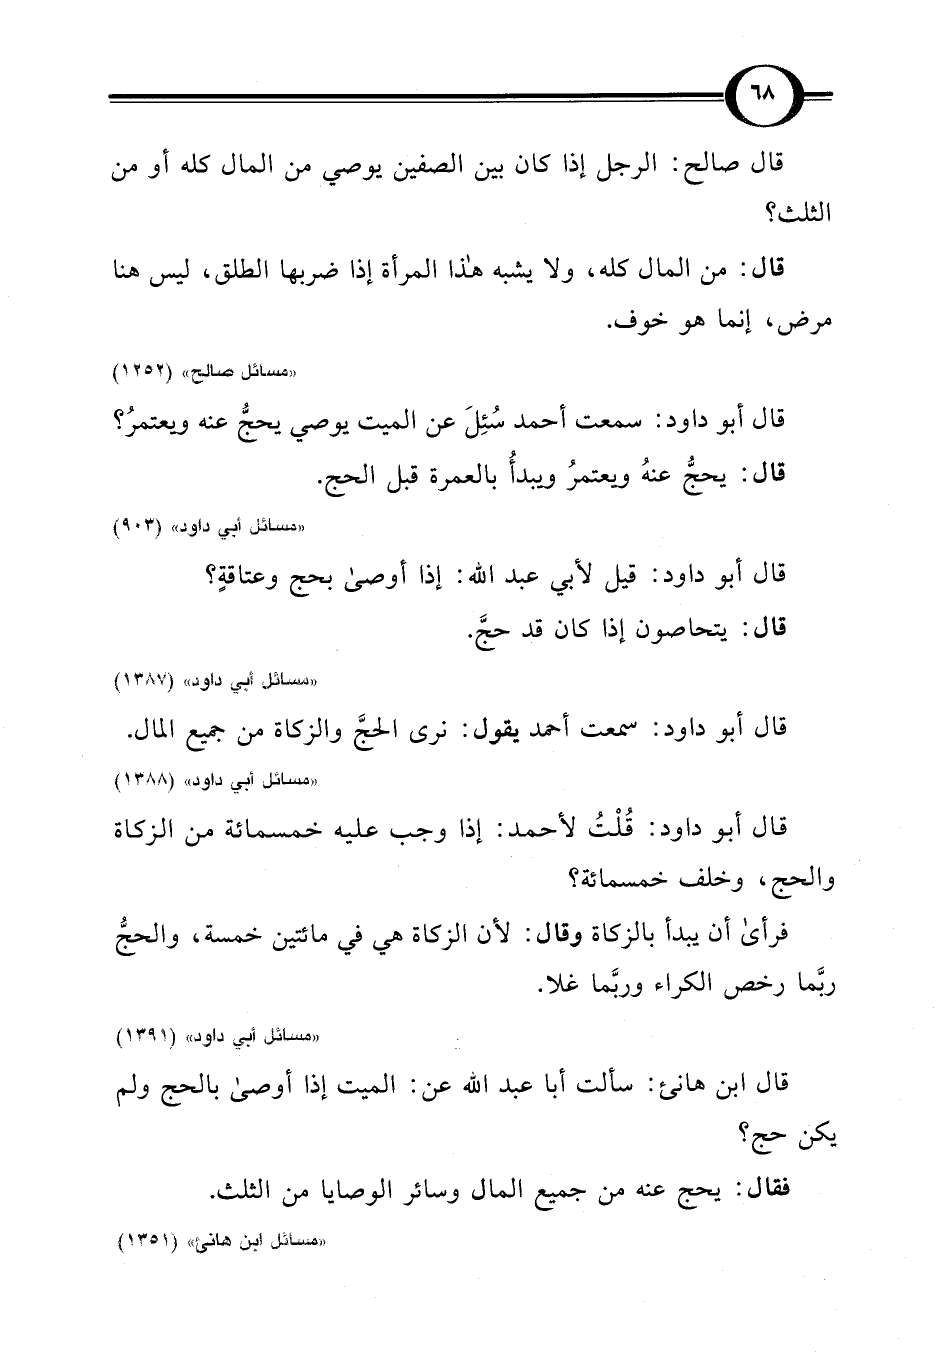 ٦٨
قال صالح: الرجل إذا كان بين الصفين يوصي من المال كله أو من
الثلث؟
قال: من المال كله، ولا يشبه هٰذا المرأة إذا ضربها الطلق، ليس هنا
مرض، إنما هو خوف.
«مسائل صالح» (١٢٥٢)
قال أبو داود: سمعت أحمد سُئِلَ عن الميت يوصي يحجُّ عنه ويعتمرُ؟
قال: يحجُّ عنهُ ويعتمرُ ويبدأُ بالعمرة قبل الحج.
«مسائل أبي داود» (٩٠٣)
قال أبو داود: قيل لأبي عبد الله: إذا أوصىٰ بحج وعتاقةٍ؟
قال: يتحاصون إذا كان قد حجَّ.
«مسائل أبي داود» (١٣٨٧)
قال أبو داود: سمعت أحمد يقول: نرى الحجَّ والزكاة من جميع المال.
«مسائل أبي داود» (١٣٨٨)
قال أبو داود: قُلْتُ لأحمد: إذا وجب عليه خمسمائة من الزكاة
والحج، وخلف خمسمائة؟
فرأىٰ أن يبدأ بالزكاة وقال: لأن الزكاة هي في مائتين خمسة، والحجُّ
ربَّما رخص الكراء وربَّما غلا.
«مسائل أبي داود» (١٣٩١)
قال ابن هانئ: سألت أبا عبد الله عن: الميت إذا أوصىٰ بالحج ولم
يكن حج؟
فقال: يحج عنه من جميع المال وسائر الوصايا من الثلث.
«مسائل ابن هانئ» (١٣٥١)